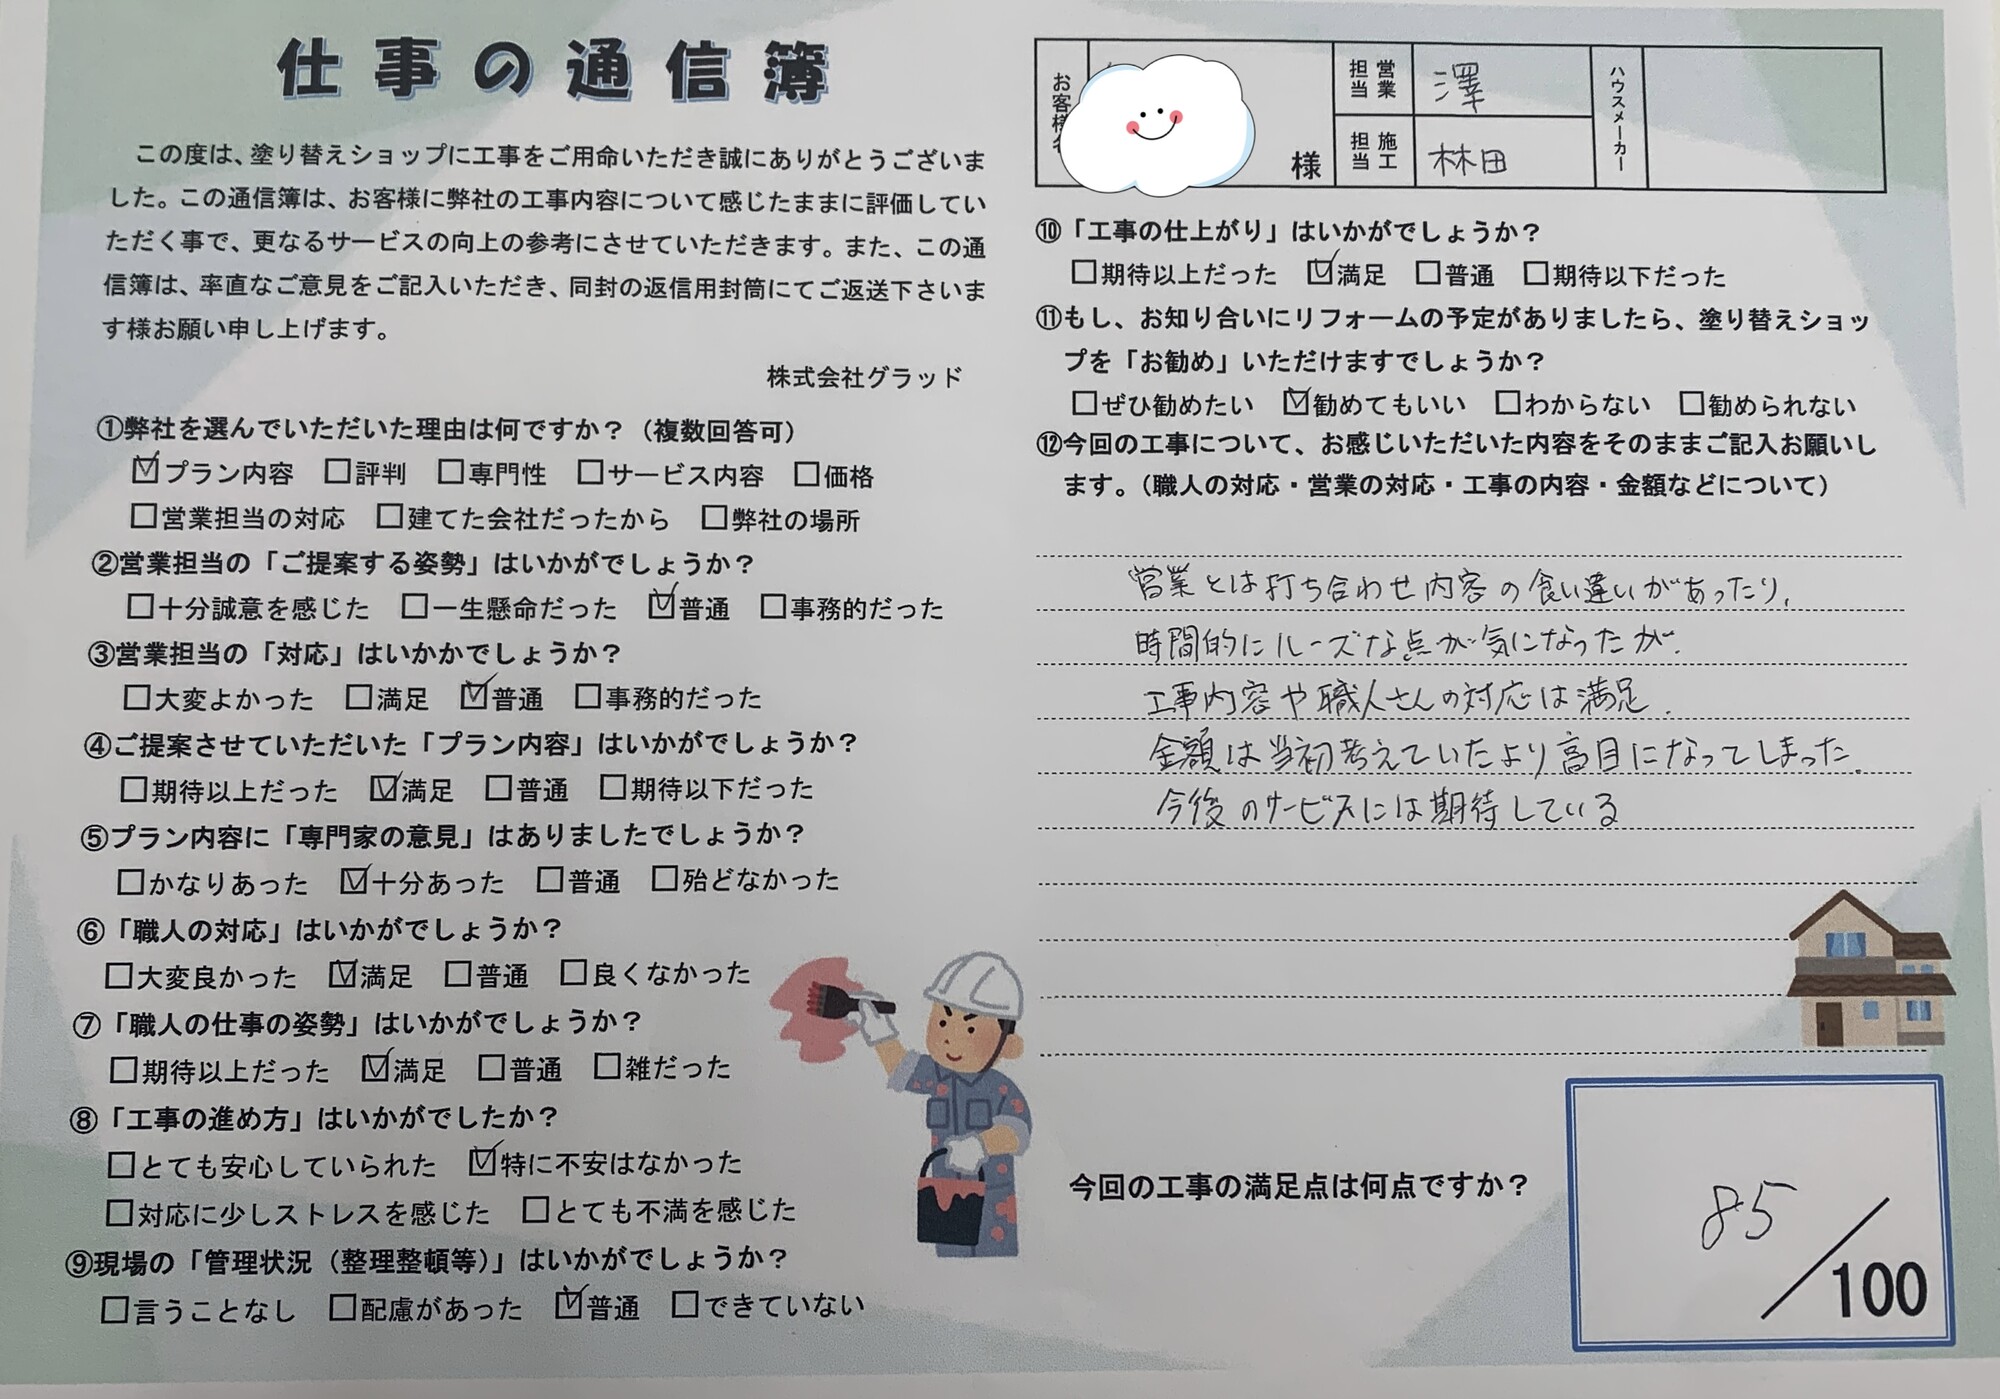 仕事の通信簿
この度は、塗り替えショップに工事をご用命いただき誠にありがとうございま
した。この通信簿は、お客様に弊社の工事内容について感じたままに評価してい
ただく事で、更なるサービスの向上の参考にさせていただきます。また、この通
信簿は、率直なご意見をご記入いただき、同封の返信用封筒にてご返送下さいま
す様お願い申し上げます。
株式会社グラッド
①弊社を選んでいただいた理由は何ですか？（複数回答可）
☑プラン内容 □評判 □専門性 □サービス内容 □価格
□営業担当の対応 □建てた会社だったから □弊社の場所
②営業担当の「ご提案する姿勢」はいかがでしょうか？
□十分誠意を感じた □一生懸命だった ☑普通 □事務的だった
③営業担当の「対応」はいかかでしょうか？
□大変よかった □満足 ☑普通 □事務的だった
④ご提案させていただいた「プラン内容」はいかがでしょうか？
□期待以上だった ☑満足 □普通 □期待以下だった
⑤プラン内容に「専門家の意見」はありましたでしょうか？
□かなりあった ☑十分あった □普通 □殆どなかった
⑥「職人の対応」はいかがでしょうか？
□大変良かった ☑満足 □普通 □良くなかった
⑦「職人の仕事の姿勢」はいかがでしょうか？
□期待以上だった ☑満足 □普通 □雑だった
⑧「工事の進め方」はいかがでしたか？
□とても安心していられた ☑特に不安はなかった
□対応に少しストレスを感じた □とても不満を感じた
⑨現場の「管理状況（整理整頓等）」はいかがでしょうか？
□言うことなし □配慮があった ☑普通 □できていない
お客様名
様
営業担当
澤
施工担当
林田
ハウスメーカー
⑩「工事の仕上がり」はいかがでしょうか？
□期待以上だった ☑満足 □普通 □期待以下だった
⑪もし、お知り合いにリフォームの予定がありましたら、塗り替えショッ
プを「お勧め」いただけますでしょうか？
□ぜひ勧めたい ☑勧めてもいい □わからない □勧められない
⑫今回の工事について、お感じいただいた内容をそのままご記入お願いし
ます。（職人の対応・営業の対応・工事の内容・金額などについて）
営業とは打ち合わせ内容の食い違いがあったり、
時間的にルーズな点が気になったが、
工事内容や職人さんの対応は満足。
金額は当初考えていたより高目になってしまった。
今後のサービスには期待している
今回の工事の満足点は何点ですか？
85/100